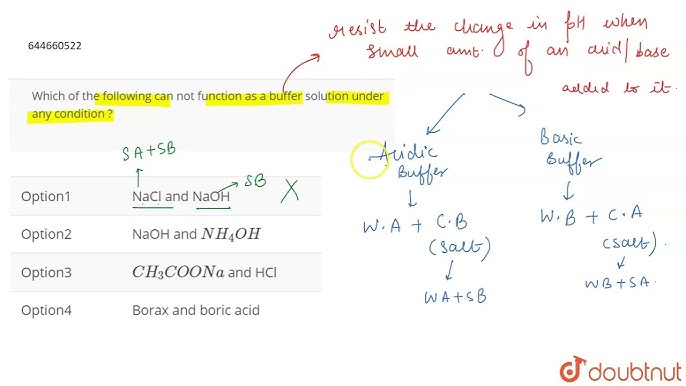 644660522
resist the change in pH when
small amt. of an acid/base
added to it.
Which of the following can not function as a buffer solution under
any condition ?
SA+SB
Acidic
Buffer
Basic
Buffer
Option1 NaCl and NaOH SB X
W.A + C.B
(Salt)
W.B + C.A
(Salt).
Option2 NaOH and NH₄OH
Option3 CH₃COONa and HCl
WA+SB
WB+SA.
Option4 Borax and boric acid
doubtnut